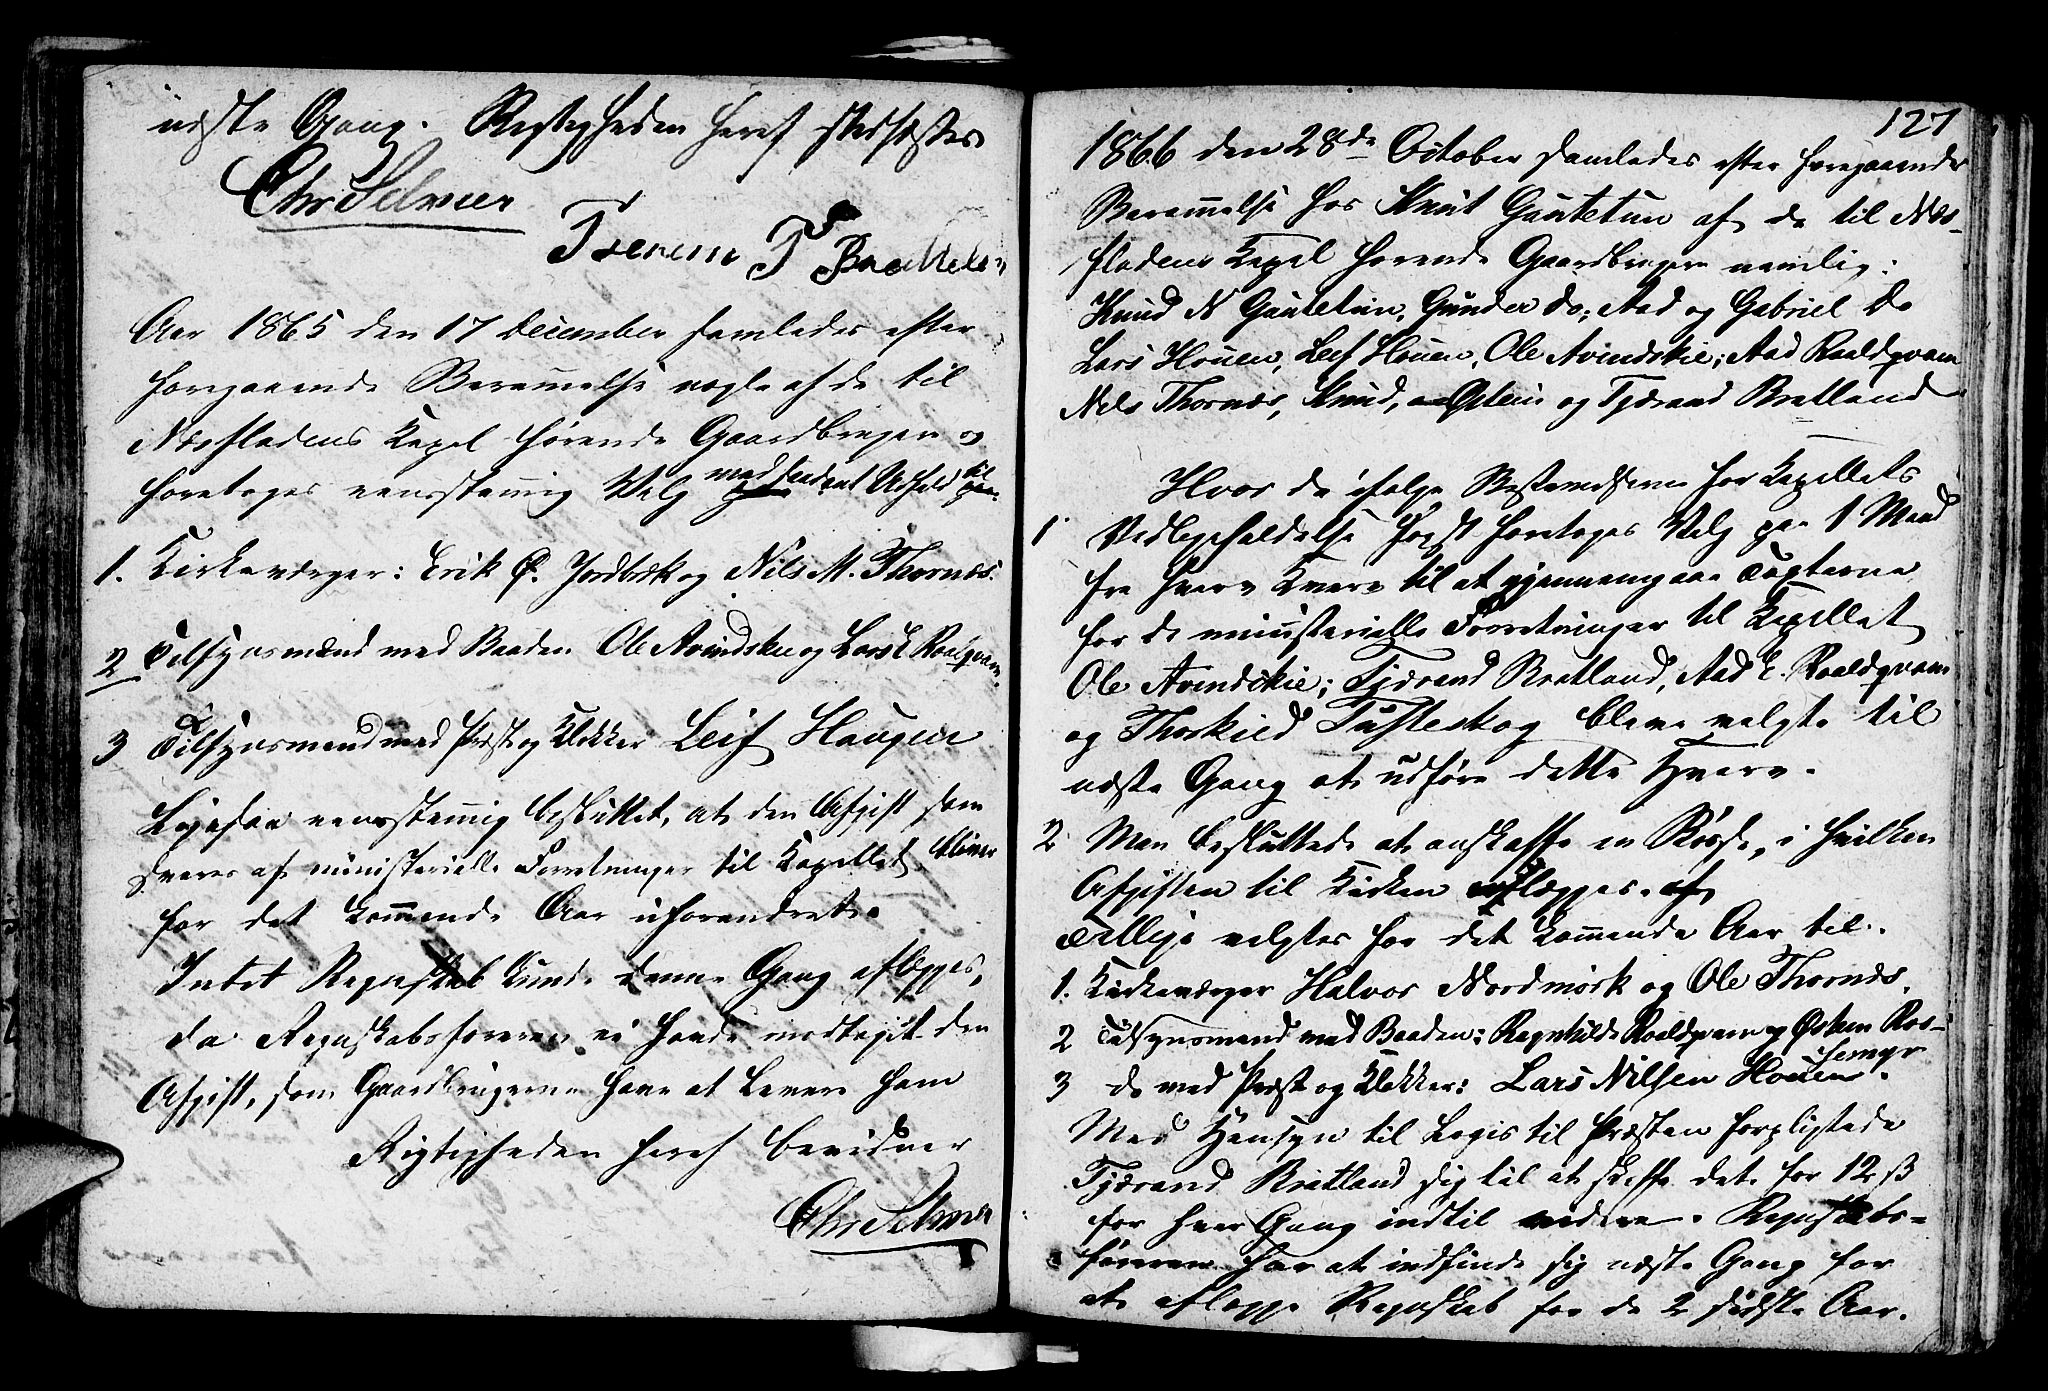 næste Gang. Rigtigheden heraf stadfæstes
Chr Selmer
T Brattelan
Aar 1865 den 17 December samledes efter
foregaaende Berammelse nogle af de til
Næsfladens Kapel hørende Gaardbrugere og
foretoges eenstemmig Valg med saadant Udfald til
1. Kirkeværger: Erik Ø. Jordbræk og Nils M. Thornæs.
2 Tilsynsmænd med Baaden Ole Avindskei og Lars E Roalqvam.
3 Tilsynsmand med Præst og Klokker Leif Haugen
Ligesaa eenstemmig besluttet, at den Afgift som
svares af ministerielle Forretninger til Kapellet bliver
for det kommende Aar uforandret.
Intet Regnskab kunde denne Gang aflægges,
da Regnskabsføreren ei havde modtaget den
Afgift, som Gaardbrugerne have at levere ham
Rigtigheden heraf bevidner
Chr Selmer
127
1866 den 28de October samledes efter foregaaende
Berammelse hos Knut Gautetun af de til Næs-
fladens Kapel hørende Gaardbrugere nemlig:
Knud N Gautetun, Gunder do; Aad og Gabriel Do
Lars Houen, Leif Houen, Ole Avindskie; Aad Roaldqvam
Nils Thornæs, Knud, Østein og Tjærand Bratland
Hvor da ifølge Bestemelserne for Kapellets
1 Vedligeholdelse først foretoges Valg paa 1 Mand
fra hver Kvarv til at gjennemgaae Taxterne
for de ministerielle Forretninger til Kapellet
Ole Avendskie; Tjærand Bratland, Aad E. Roaldqvam
og Thorkied Tufteskog bleve valgte til
næste Gang at udføre dette Hverv.
2 Man besluttede at anskaffe en Bøsse, i hvilken
Afgiften til Kirken nedlægges.
Ærllige valgtes for det kommende Aar til.
1. Kirkeværger Halvor Nordmørk og Ole Thornæs.
2 Tilsynsmænd med Baaden: Ragnhilde Roaldqvam og Østen Ros-
semyr
3 do med Præst og Klokker: Lars Nilsen Houen.
Med Hensyn til Logis til Præsten forpligtede
Tjærand Bratland sig til at skaffe det for 12 ß
for hver Gang indtil videre. Regnskabs-
føreren har at indfinde sig næste Gang for
at aflægge Regnskab for de 2 sidste Aar.